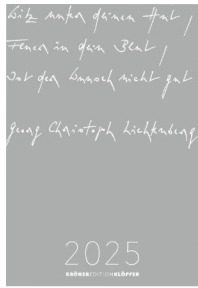 Witz unter deinen Hut,
Feuer in dein Blut,
Ist der Wunsch nicht gut
Georg Christoph Lichtenberg
2025
KRÖNEREDITIONKLÖPFER